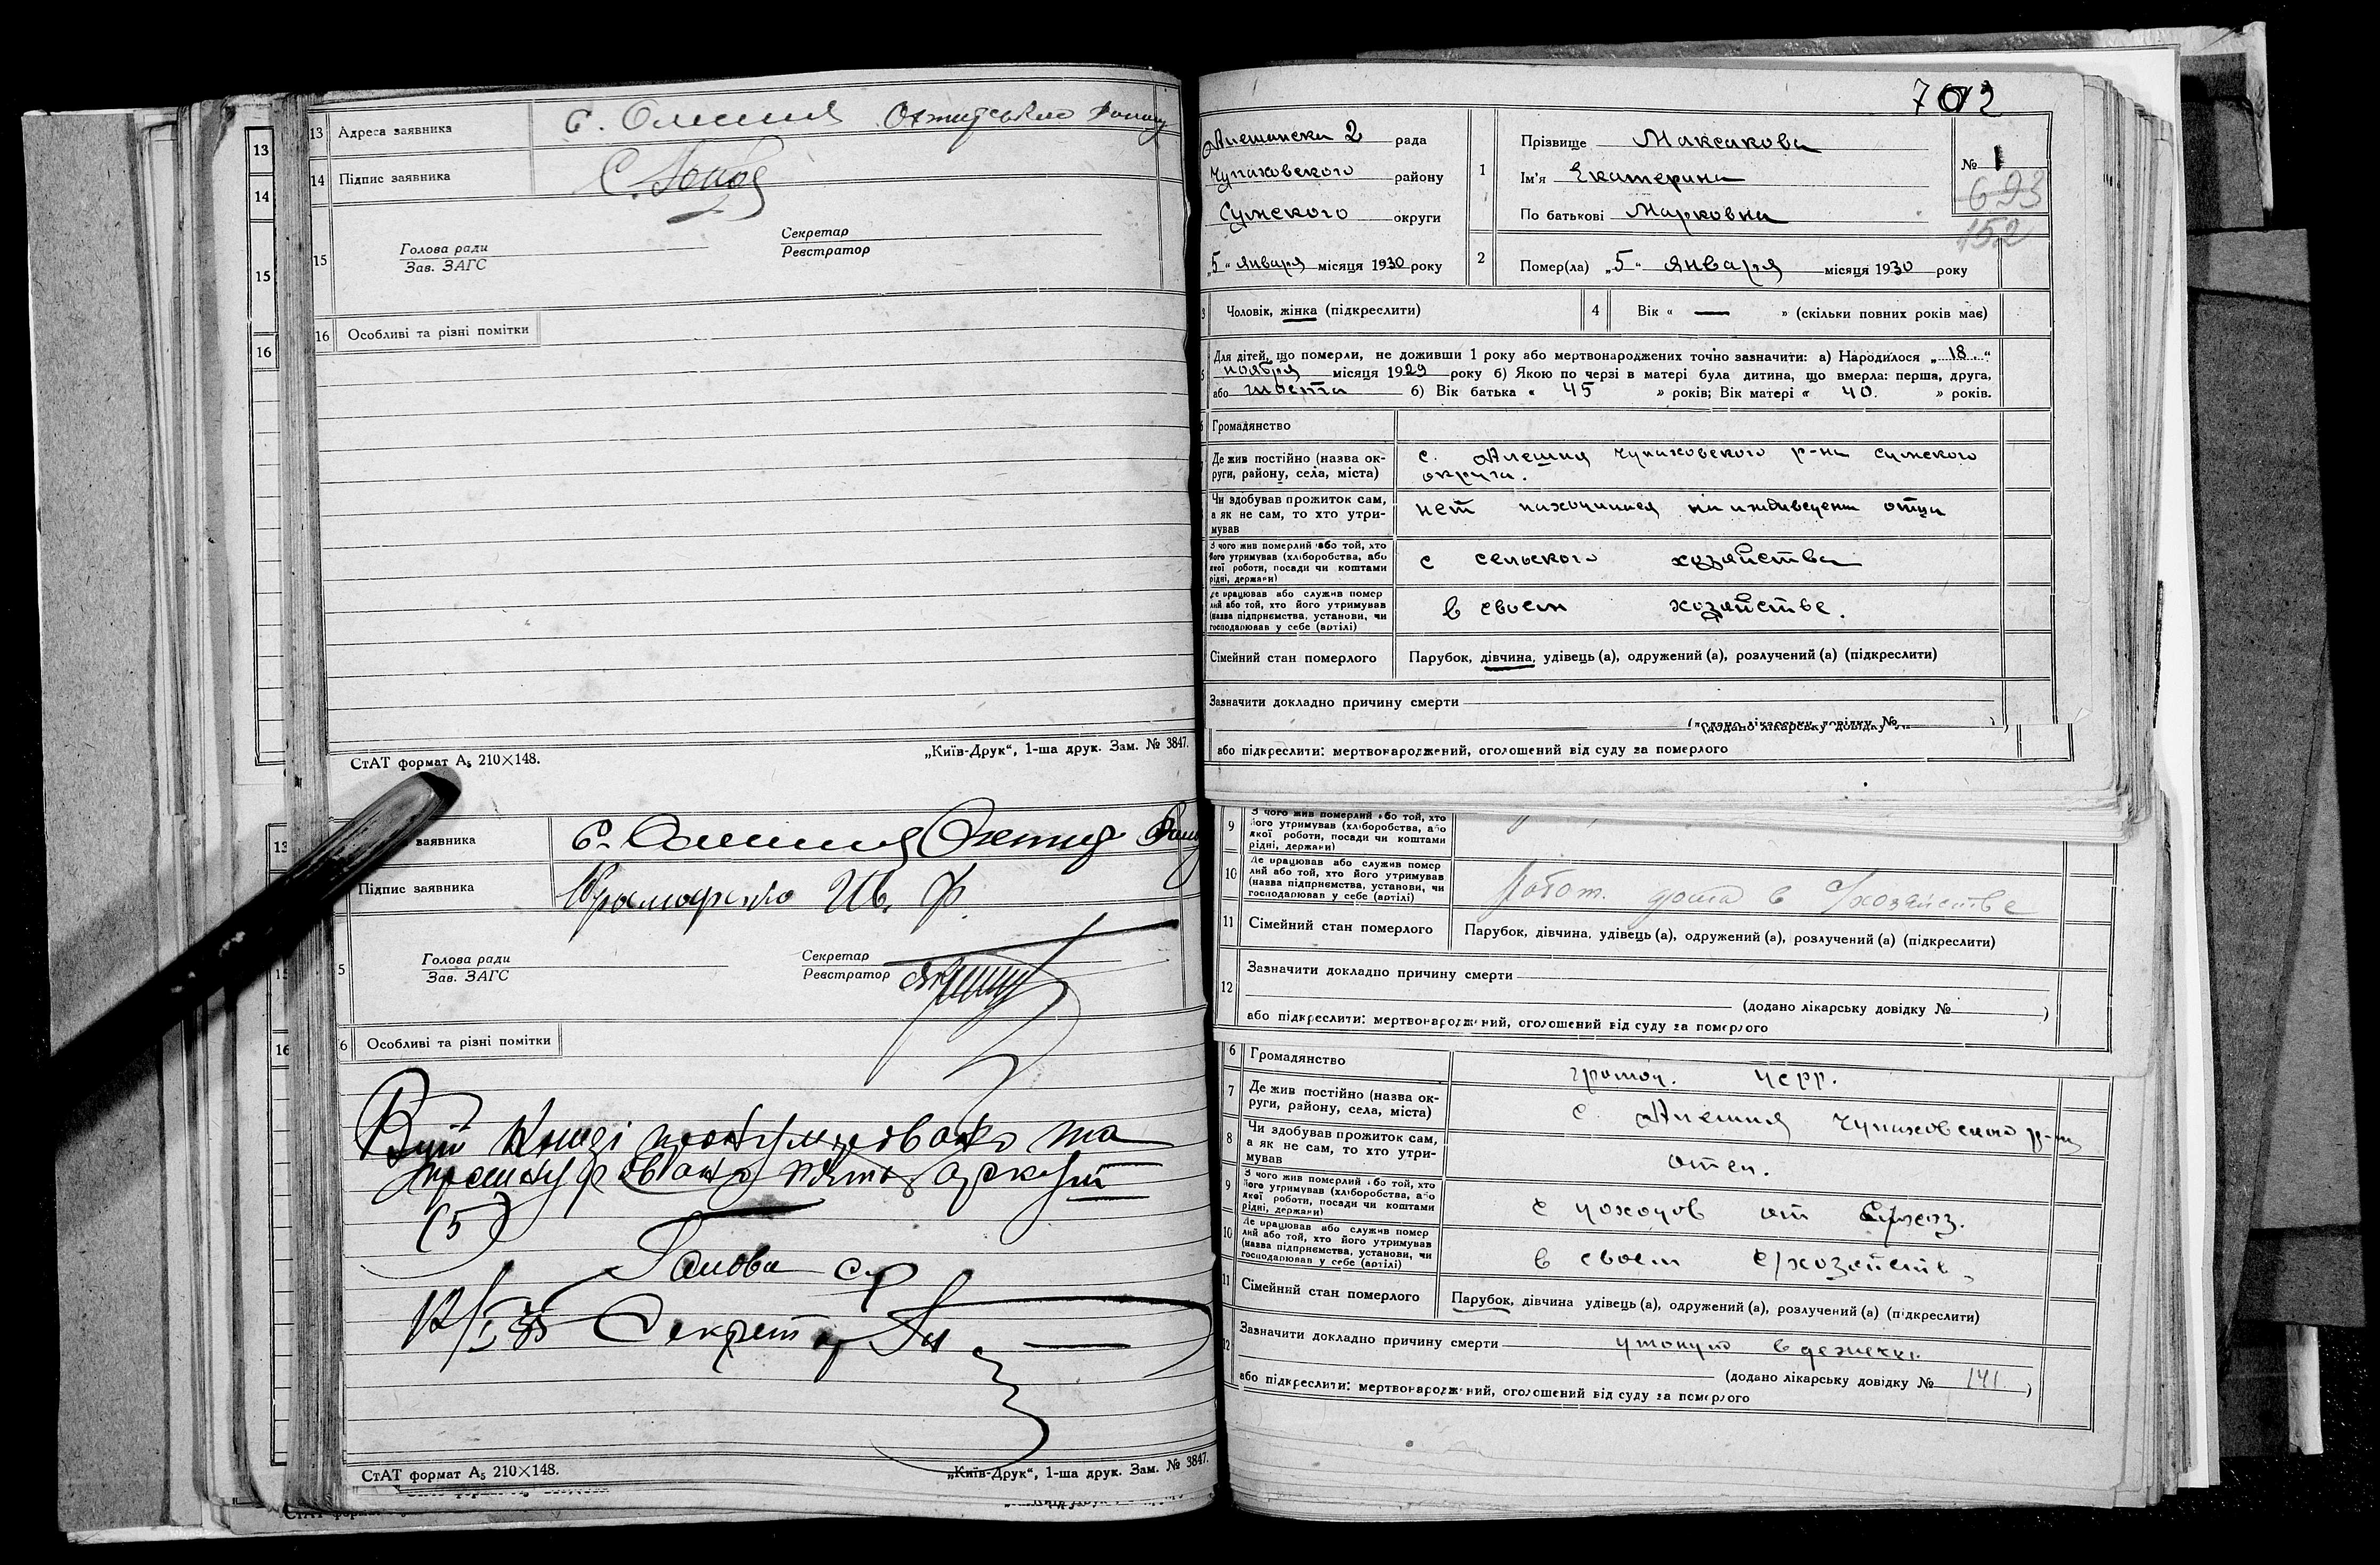 13 Адреса заявника с. Олешня Охтирського
14 Підпис заявника
15 Голова ради Секретар
Зав. ЗАГС Реєстратор
16 Особливі та різні помітки
СтАТ формат А₅ 210×148. „Київ-Друк“, 1-ша друк. Зам. № 3847.
заявника с. Олешня
Підпис заявника Ив. Ф.
Голова ради Секретар
Зав. ЗАГС Реєстратор
5
6 Особливі та різні помітки
Книзі та
аркуш
(5)
Голова с/р
Секретар
СтАТ формат А₅ 210×148. „Київ-Друк“, 1-ша друк. Зам. № 3847.
13
14
15
16
702
2 рада
Чупаховского району
Сумского округи
„5“ января місяця 1930 року
1 Прізвище Максакова
Ім'я Екатерина
По батькові Марковна
№ 1
693
152
2 Помер(ла) „5“ января місяця 1930 року
Чоловік, жінка (підкреслити)
4 Вік « — » (скільки повних років має)
Для дітей, що померли, не доживши 1 року або мертвонароджених точно зазначити: а) Народилося „ 18. “
ноября місяця 1929 року б) Якою по черзі в матері була дитина, що вмерла: перша, друга,
або шоста б) Вік батька « 45 » років; Вік матері « 40. » років.
Громадянство
Де жив постійно (назва ок-
руги, району, села, міста) с. Алешня Чупаховского р-на Сумского
округа.
Чи здобував прожиток сам,
а як не сам, то хто утри-
мував нет находилася на иждивении отца
З чого жив померлий або той, хто
його утримував (хліборобства, або
якої роботи, посади чи коштами
рідні, держави) с сельского хозяйства
Де працював або служив помер
лий або той, хто його утримував
(назва підприємства, установи, чи
господарював у себе (артілі) в своем хозяйстве.
Сімейний стан померлого Парубок, дівчина, удівець (а), одружений (а), розлучений (а) (підкреслити)
Зазначити докладно причину смерти
(додано лікарську довідку №
або підкреслити: мертвонароджений, оголошений від суду за померлого
9 З чого жив померлий або той, хто
його утримував (хліборобства, або
якої роботи, посади чи коштами
рідні, держави)
10 Де працював або служив помер
лий або той, хто його утримував
(назва підприємства, установи, чи
господарював у себе (артілі) Работ. дома в с/хозяйстве
11 Сімейний стан померлого Парубок, дівчина, удівець (а), одружений (а), розлучений (а) (підкреслити)
12 Зазначити докладно причину смерти
(додано лікарську довідку № )
або підкреслити: мертвонароджений, оголошений від суду за померлого
6 Громадянство
7 Де жив постійно (назва ок-
руги, району, села, міста) с. Алешня Чупаховского р-на
8 Чи здобував прожиток сам,
а як не сам, то хто утри-
мував отец.
9 З чого жив померлий або той, хто
його утримував (хліборобства, або
якої роботи, посади чи коштами
рідні, держави) с доходов от с/хоз.
10 Де працював або служив помер
лий або той, хто його утримував
(назва підприємства, установи, чи
господарював у себе (артілі) в своем с/хозяйств
11 Сімейний стан померлого Парубок, дівчина удівець (а), одружений (а), розлучений (а) (підкреслити)
12 Зазначити докладно причину смерти утонул
(додано лікарську довідку № 141. )
або підкреслити: мертвонароджений, оголошений від суду за померлого